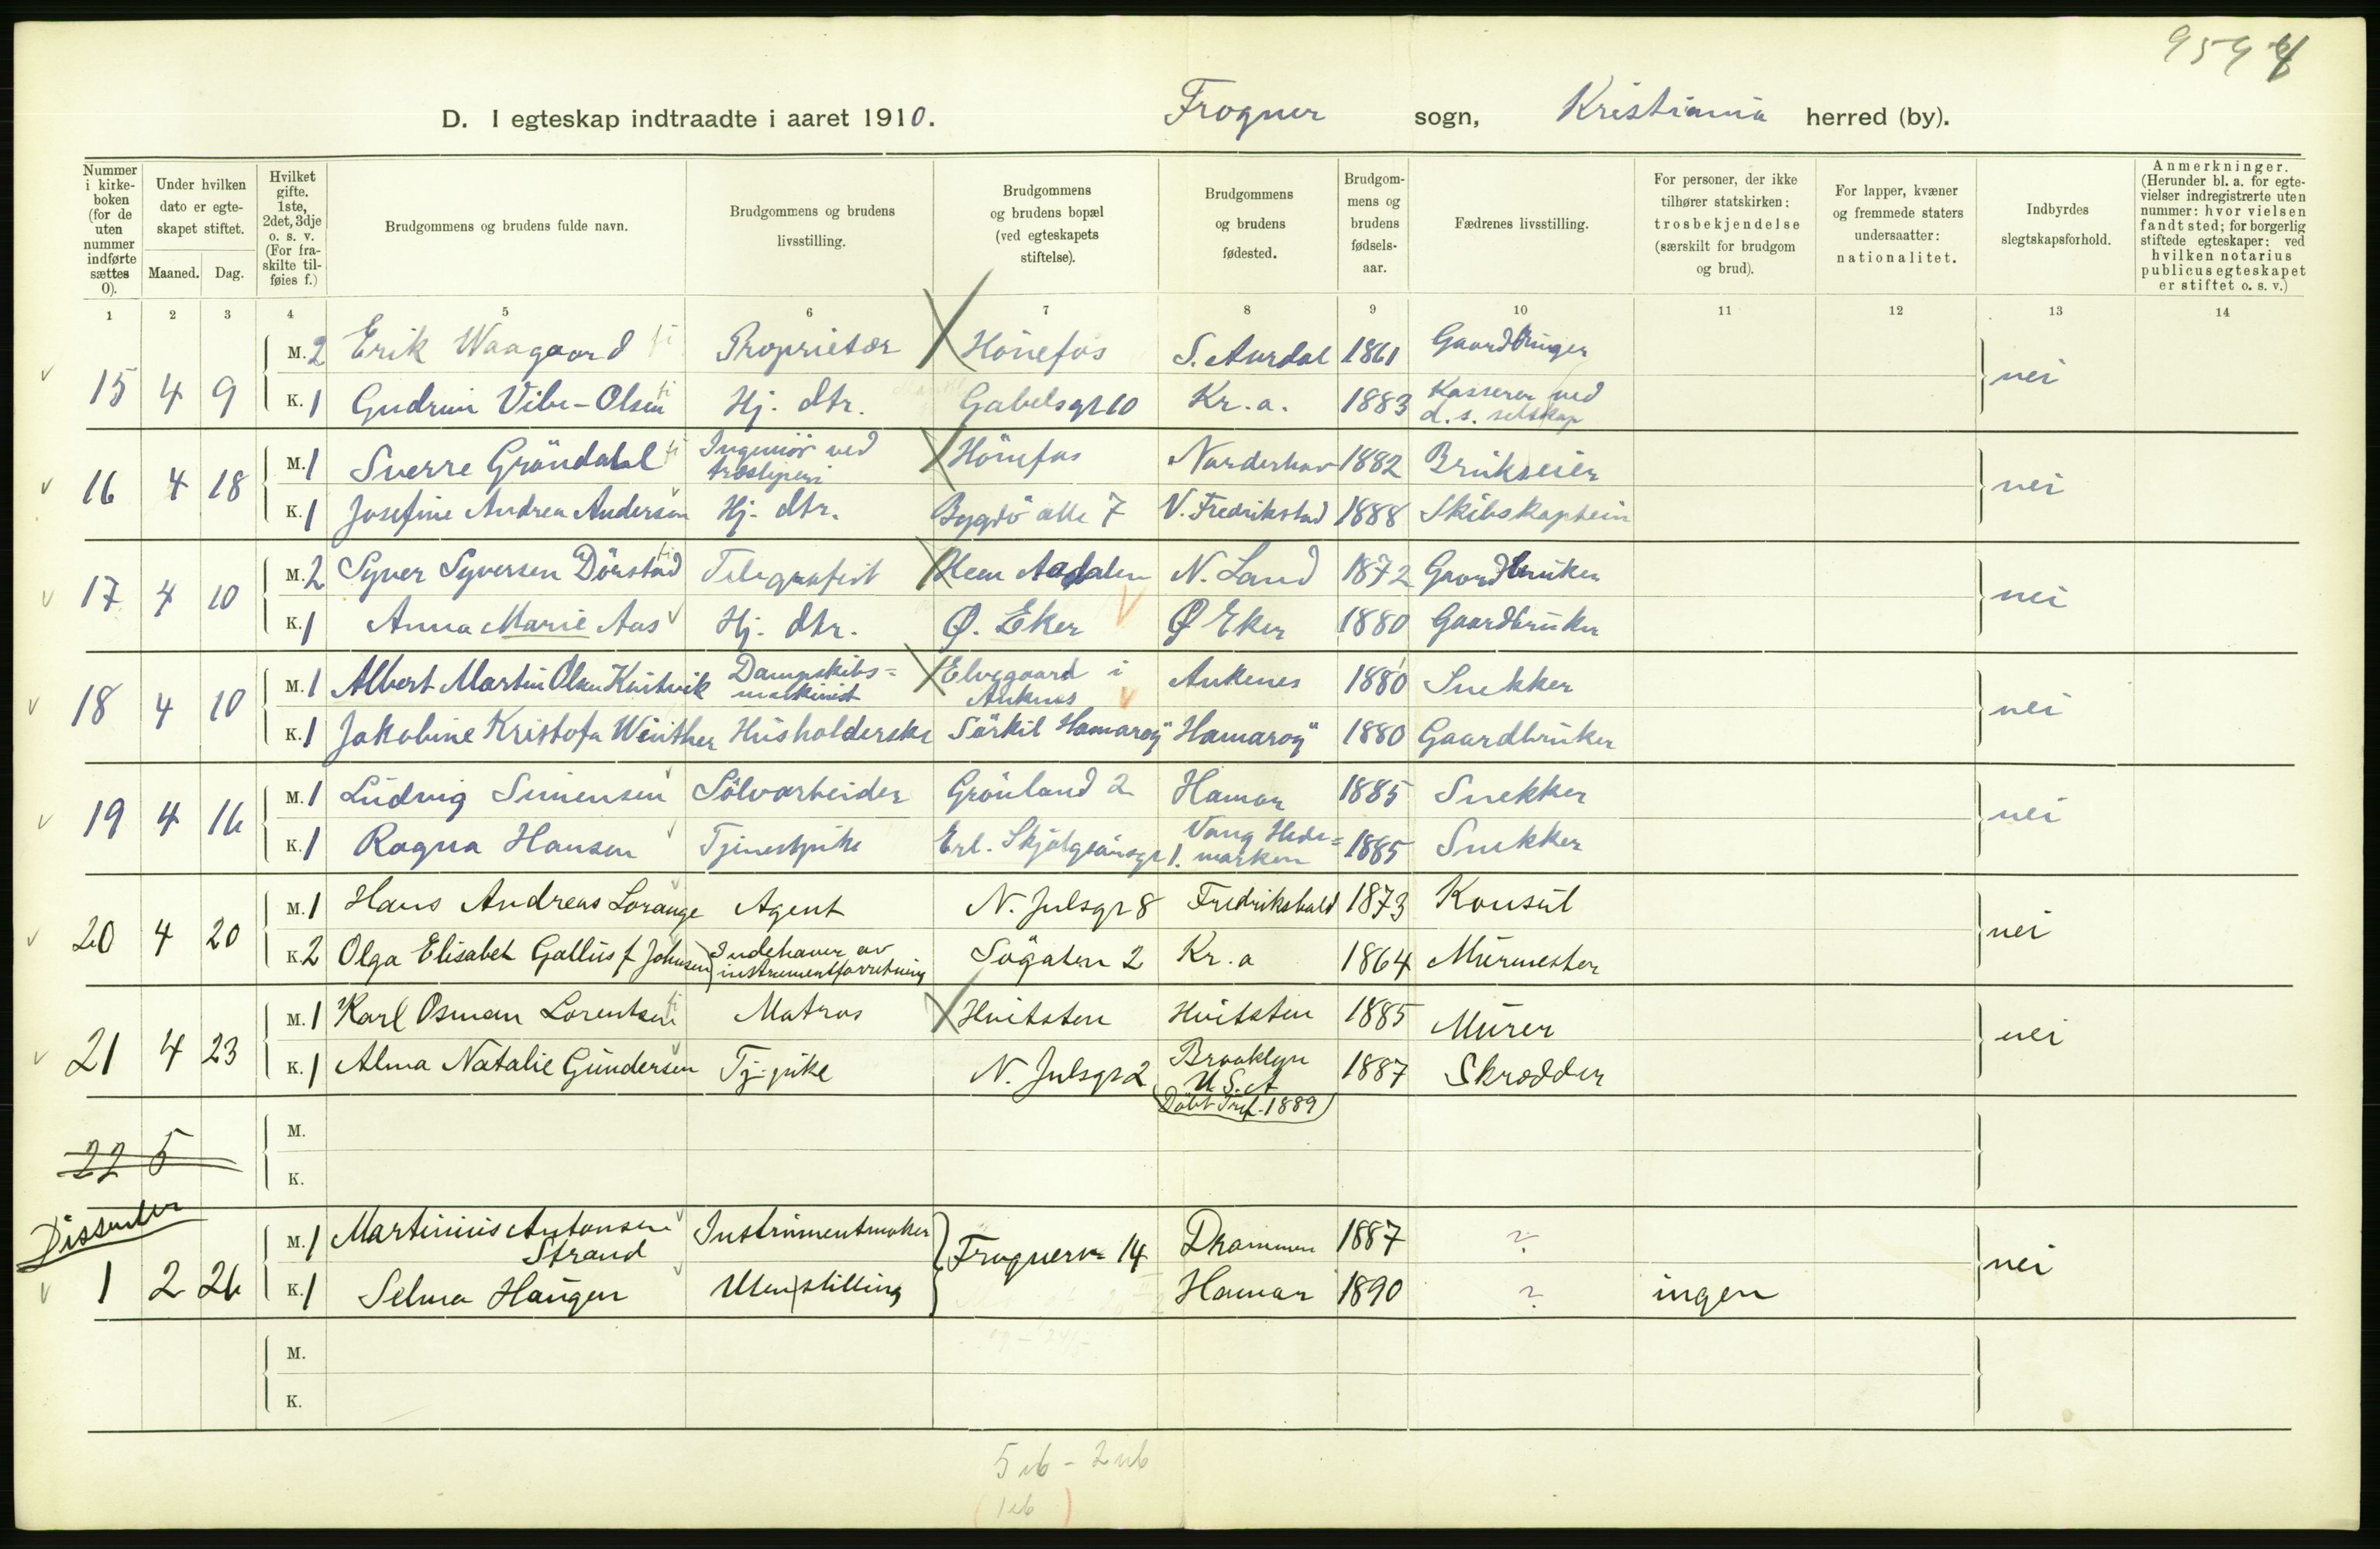 D. I egteskap indtraadte i aaret 1910. Frogner sogn, Kristiania herred (by).
Nummer i kirke-boken (for de uten nummer indførte sættes 0).
Under hvilken dato er egte-skapet stiftet.
Maaned. Dag.
Hvilket gifte. 1ste, 2det, 3dje o. s. v. (For fra-skilte til-føies f.)
Brudgommens og brudens fulde navn.
Brudgommens og brudens livsstilling.
Brudgommens og brudens bopæl (ved egteskapets stiftelse).
Brudgommens og brudens fødested.
Brudgom-mens og brudens fødsels-aar.
Fædrenes livsstilling.
For personer, der ikke tilhører statskirken: trosbekjendelse (særskilt for brudgom og brud).
For lapper, kvæner og fremmede staters undersaatter: nationalitet.
Indbyrdes slegtskapsforhold.
Anmerkninger. (Herunder bl. a. for egte-vielser indregistrerte uten nummer: hvor vielsen fandt sted; for borgerlig stiftede egteskaper: ved hvilken notarius publicus egteskapet er stiftet o. s. v.)
1 2 3 4 5 6 7 8 9 10 11 12 13 14
15 4 9 M. 2 Erik Waagaard Proprietær Hönefos S. Aurdal 1861 Gaardbruger nei
K. 1 Gudrun Vibe-Olsen Hj. dtr. Gabelsgt 10 Kr.a. 1883 Kasserer ved d. s. selskap
16 4 18 M. 1 Sverre Gröndahl Ingeniör ved træsliperi Hönefos Norderhov 1882 Brukseier nei
K. 1 Josefine Andrea Andersen Hj. dtr. Bygdö alle 7 V. Fredrikstad 1888 Skibskaptein
17 4 10 M. 2 Syver Syversen Dörstad Telegrafist Hen Aadalen N. Land 1872 Gaardbruker nei
K. 1 Anna Marie Aas Hj. dtr. Ø. Eker Ø Eker 1880 Gaardbruker
18 4 10 M. 1 Albert Martin Olsen Dampskibs=maskinist Elvegaard i Ankenes Ankenes 1880 Snekker nei
K. 1 Jakobine Kristofa Winther Husholderske Sörkil Hamaröy Hamaröy 1880 Gaardbruker
19 4 16 M. 1 Ludvig Simensen Sölvarbeider Grönland 2 Hamar 1885 Snekker nei
K. 1 Ragna Hansen Tjenestpike Erl. Skjalgsönsgt 1. Vang Hede=marken 1885 Snekker
20 4 20 M. 1 Hans Andreas Lorange Agent N. Julsgt 8 Fredrikshald 1873 Konsul nei
K. 2 Olga Elisabet Gallus f Johnsen Indehaver av instrumentforretning Sögaten 2 Kr.a 1864 Murmester
21 4 23 M. 1 Karl Osman Lorentsen Matros Hvitsten Hvitsten 1885 Murer nei
K. 1 Alma Natalie Gundersen Tj.pike N. Julsgt 2 Brooklyn U.S.A 1887 Skrædder
22 5 M.
K.
Dissenter
1 2 26 M. 1 Martinius Antonsen Strand Instrumentmaker Frognerv 14 Drammen 1887 ? nei
K. 1 Selma Haugen Uten stilling Hamar 1890 ? ingen
M.
K.
5 ub - 2 ub